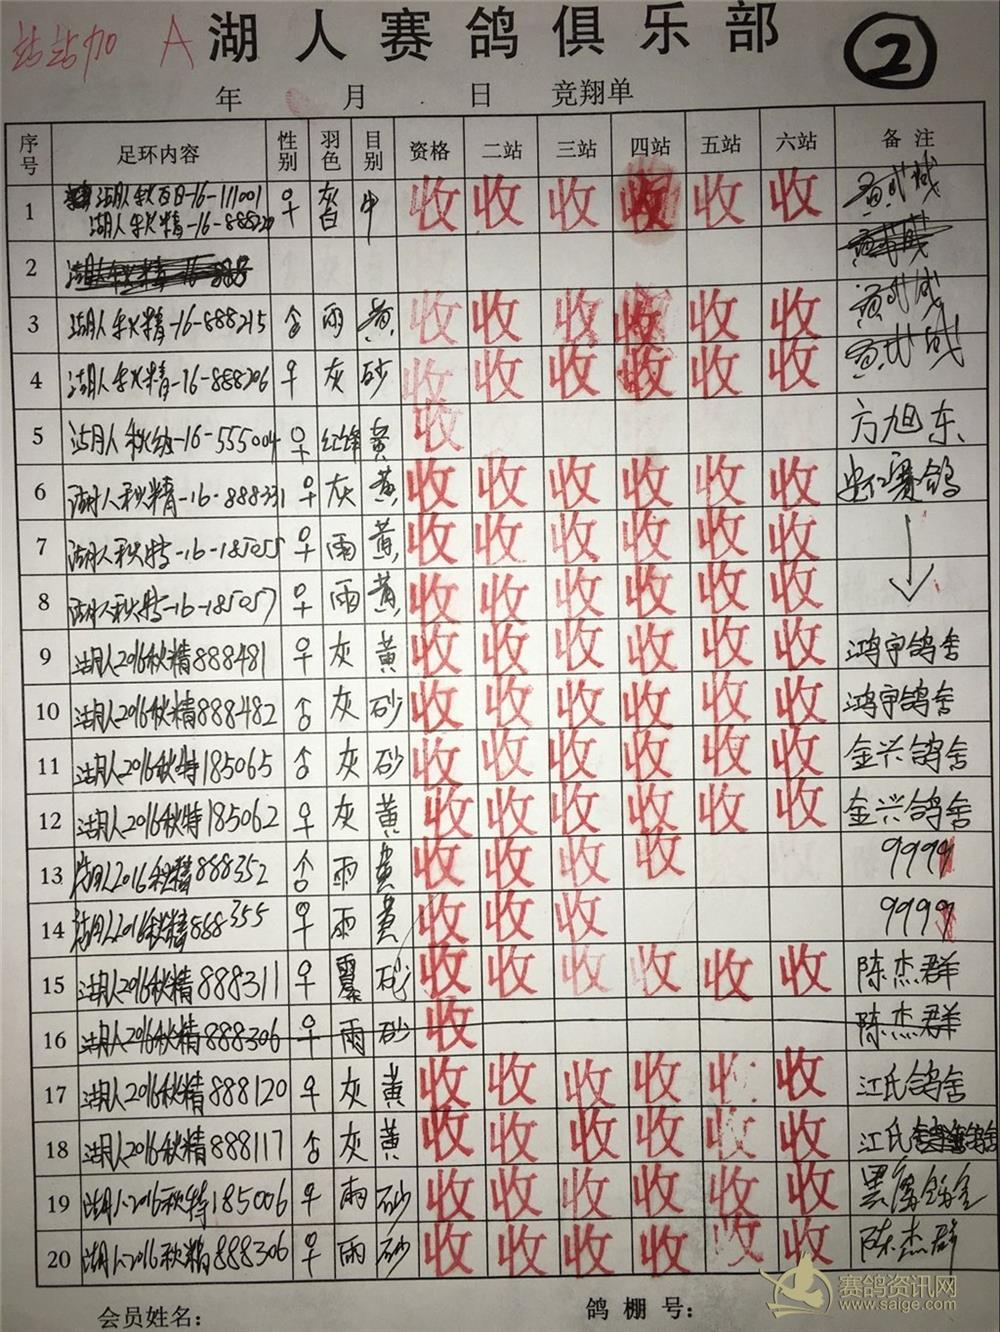 站站加 A 湖人赛鸽俱乐部 2
年 月 日 竞翔单
序号 足环内容 性别 羽色 目别 资格 二站 三站 四站 五站 六站 备注
1 湖人秋百日-16-111001 ♀ 灰白 牛 收 收 收 收 收 收
湖人秋精-16-888220
2
3 湖人秋精-16-888215 ♂ 雨 黄 收 收 收 收 收 收
4 湖人秋精-16-888206 ♀ 灰 砂 收 收 收 收 收 收
5 湖人秋纳-16-555004 ♀ 红绛 黄 收 方旭东
6 湖人秋精-16-888331 ♀ 灰 黄 收 收 收 收 收 收 忠仁赛鸽
7 湖人秋特-16-185055 ♀ 雨 黄 收 收 收 收 收 收
8 湖人秋特-16-185057 ♀ 雨 黄 收 收 收 收 收 收
9 湖人2016秋精888481 ♀ 灰 黄 收 收 收 收 收 收 鸿宇鸽舍
10 湖人2016秋精888482 ♂ 灰 砂 收 收 收 收 收 收 鸿宇鸽舍
11 湖人2016秋特185065 ♂ 灰 砂 收 收 收 收 收 收 金兴鸽舍
12 湖人2016秋特185062 ♀ 灰 黄 收 收 收 收 收 收 金兴鸽舍
13 湖人2016秋精888352 ♂ 雨 黄 收 收 收 收 9999
14 湖人2016秋精888355 ♀ 雨 黄 收 收 收 9999
15 湖人2016秋精888311 ♀ 砂 收 收 收 收 收 收 陈杰群
16 湖人2016秋精888306 ♀ 雨 砂 收 陈杰群
17 湖人2016秋精888120 ♀ 灰 黄 收 收 收 收 收 收 江氏鸽舍
18 湖人2016秋精888117 ♂ 灰 黄 收 收 收 收 收 收 江氏鸽舍
19 湖人2016秋特185006 ♀ 雨 砂 收 收 收 收 收 收
20 湖人2016秋精888306 ♀ 雨 砂 收 收 收 收 收 收 陈杰群
会员姓名： 鸽棚号：
赛鸽资讯网
www.saige.com